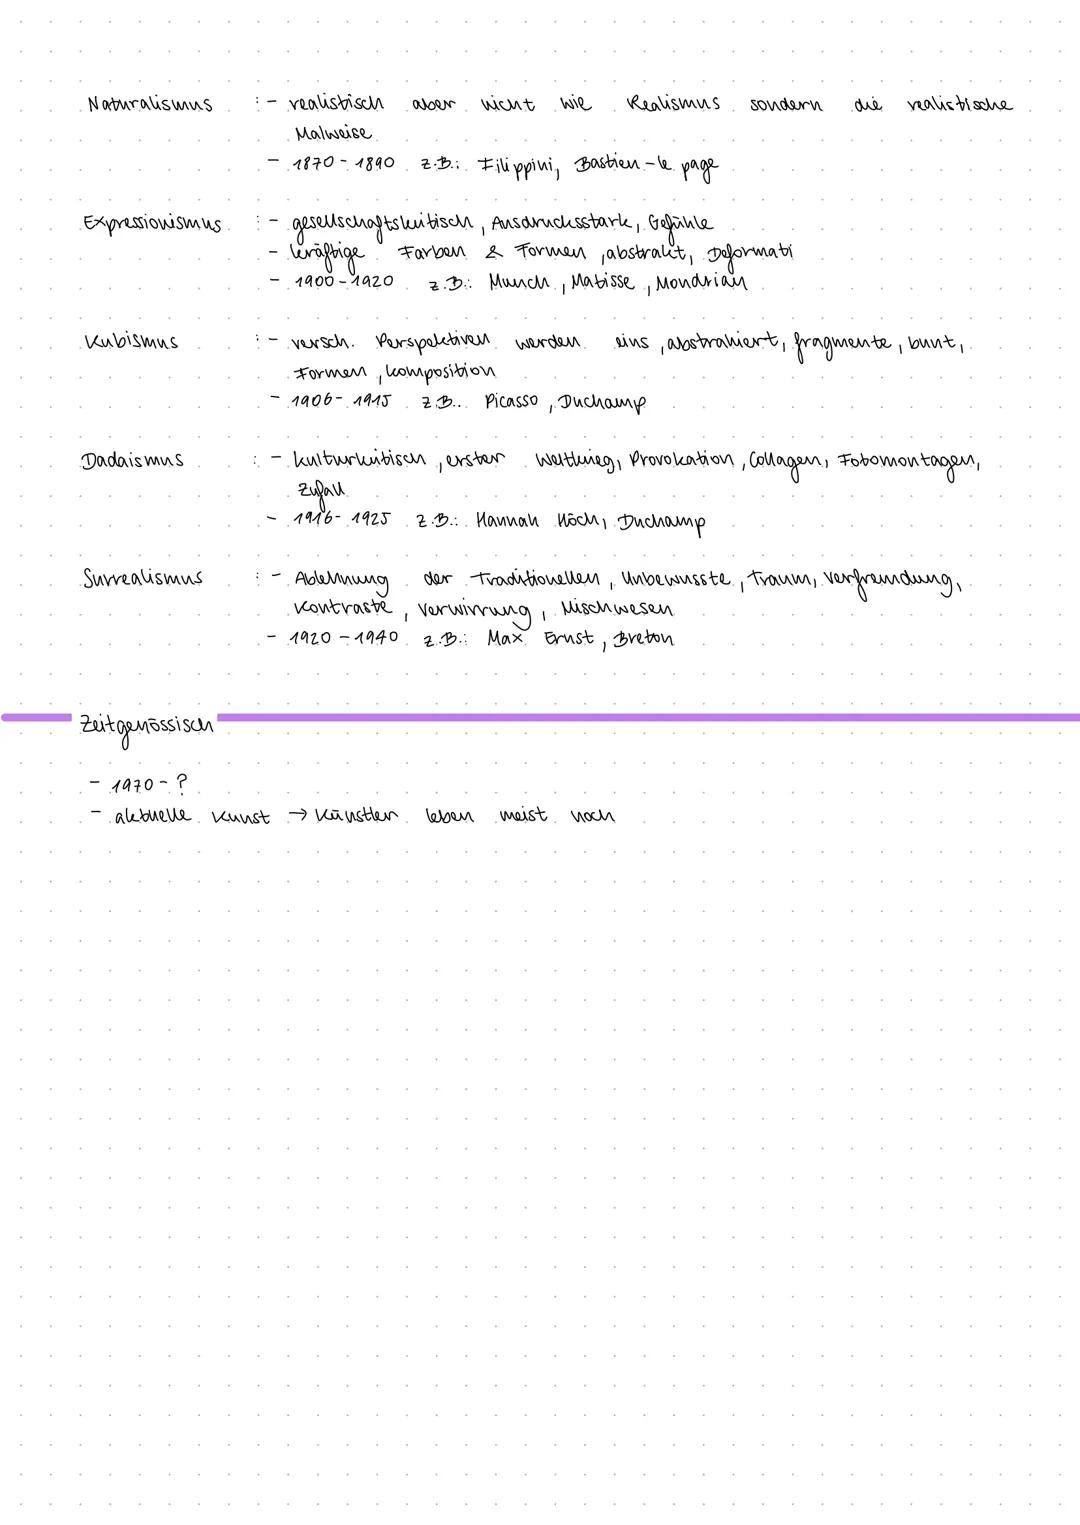 Naturalismus : - realistisch aber nicht wie Realismus sondern die realistische
Malweise
- 1870 - 1890 z.B.: Filippini, Bastien-le page
Expressionismus : - gesellschaftskritisch, Ausdrucksstark, Gefühle
- kräftige Farben & Formen, abstrakt, Deformati
- 1900-1920 z.B.: Munch, Matisse, Mondrian
Kubismus : - versch. Perspektiven werden eins, abstrahiert, fragmente, bunt,
Formen, komposition
- 1906- 1915 z.B.. Picasso, Duchamp
Dadaismus : - kulturkritisch, erster Weltkrieg, Provokation, Collagen, Fotomontagen,
Zufall
- 1916- 1925 z.B.: Hannah Höch, Duchamp
Surrealismus : - Ablehnung der Traditionellen, Unbewusste, Traum, Verfremdung,
Kontraste, Verwirrung, Mischwesen
- 1920 - 1940 z.B.: Max Ernst, Breton
Zeitgenössisch
- 1970 - ?
- aktuelle Kunst → Künstler leben meist noch